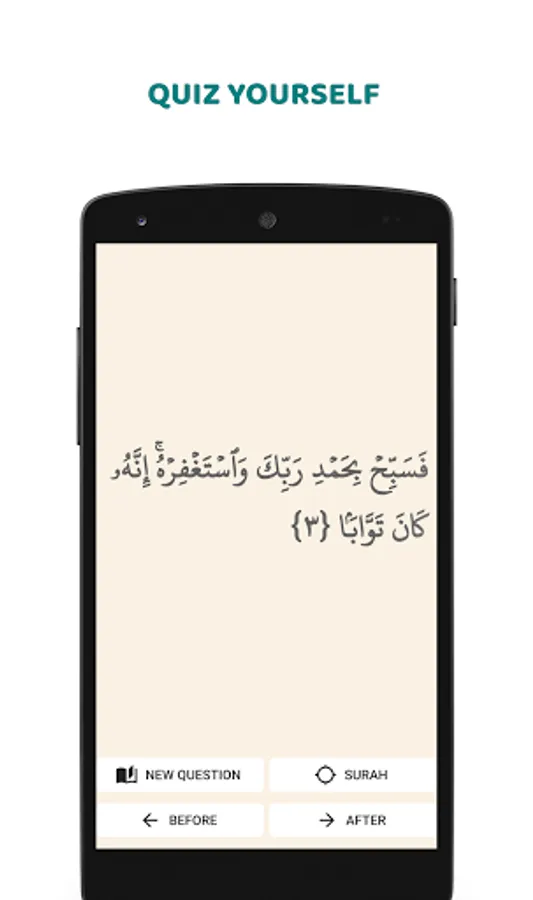 QUIZ YOURSELF
فَسَبِّحۡ بِحَمۡدِ رَبِّكَ وَٱسۡتَغۡفِرۡهُۚ إِنَّهُۥ
كَانَ تَوَّابَۢا {٣}
NEW QUESTION
SURAH
BEFORE
AFTER